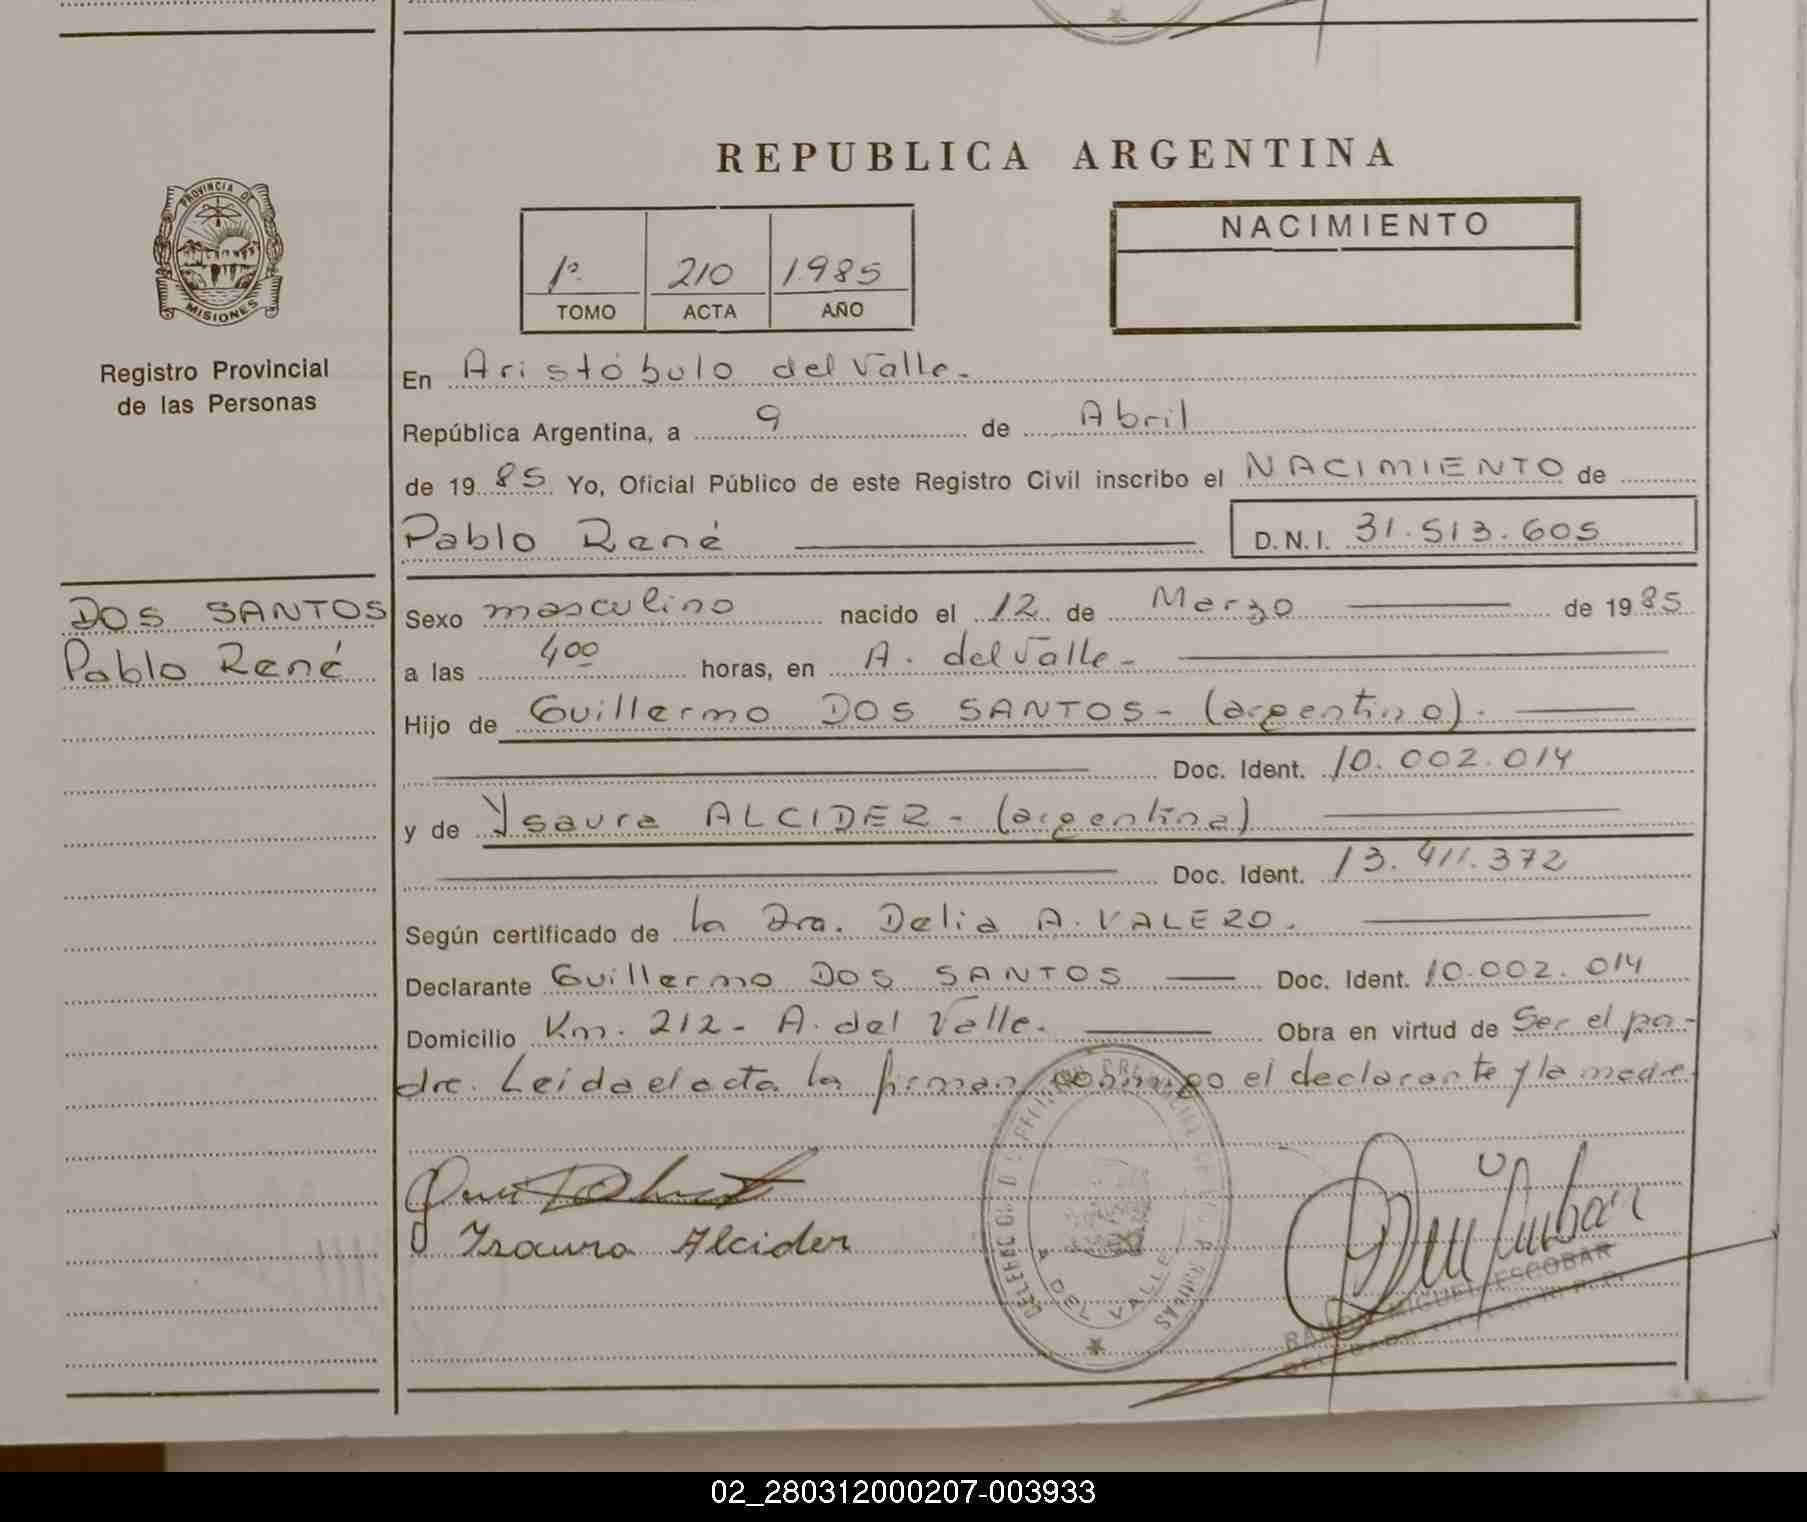 REPUBLICA ARGENTINA
PROVINCIA DE
MISIONES
Registro Provincial
de las Personas
1º 210 1985
TOMO ACTA AÑO
NACIMIENTO
En Aristóbulo del Valle.-
República Argentina, a 9 de Abril
de 19 85 Yo, Oficial Público de este Registro Civil inscribo el NACIMIENTO de
Pablo René
D.N.I. 31.513.605
DOS SANTOS
Pablo René
Sexo masculino nacido el 12 de Marzo de 19 85
a las 4 00 horas, en A. del Valle-
Hijo de Guillermo DOS SANTOS- (argentino).
Doc. Ident. 10.002.014
y de Ysaura ALCIDER - (argentina)
Doc. Ident. 13.411.372
Según certificado de la Dra. Delia A. VALERO.
Declarante Guillermo DOS SANTOS Doc. Ident. 10.002.014
Domicilio Km. 212 - A. del Valle. Obra en virtud de Ser el pa-
dre. Leida el acta la firman conmigo el declarante y la madre.
Isaura Alcider
A. DEL VALLE
MIGUEL ESCOBAR
02_280312000207-003933